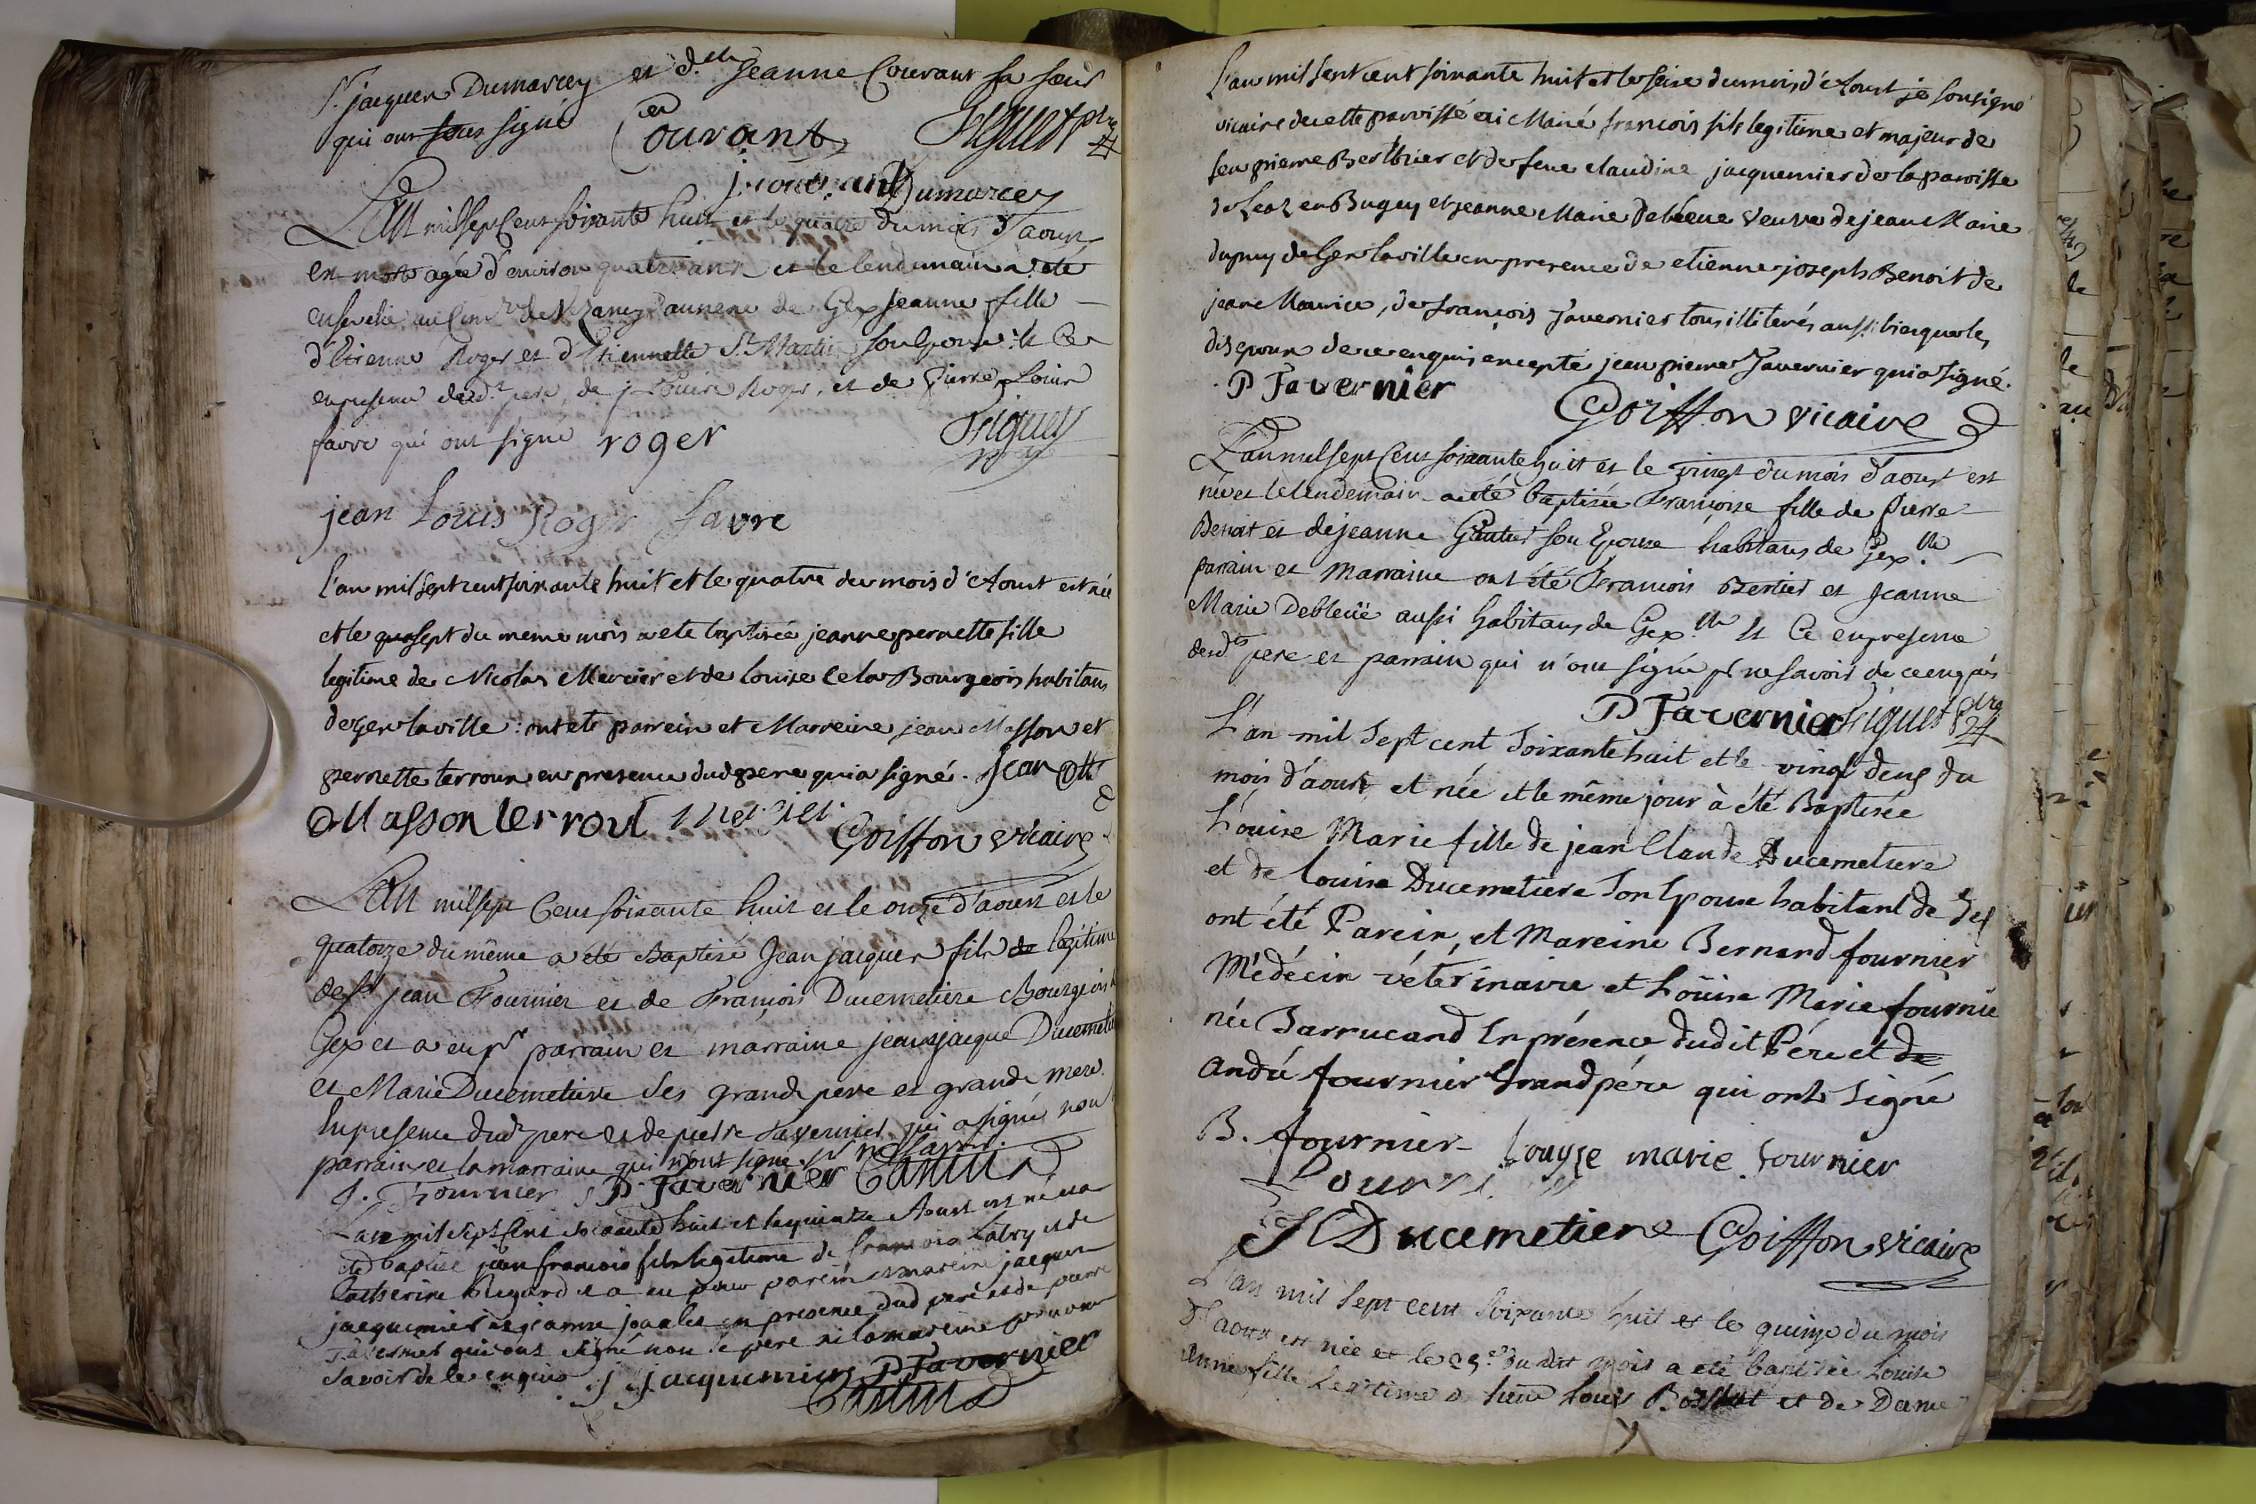 Sr. jacques Dumarcey et d.lle Jeanne Courant sa sœur
qui ont sous signé
Courant
Piguet ptre
j. courant Dumarcey
L'an mil sept Cent soixante huit et le quatre du mois d'aoust
est morte agée d'environ quatre ans et le lendemain a été
ensevelie au Cim.re de annexe de Gex Jeanne fille
d'Etienne Roger et d'Etiennette St. Martin son Epouse : et Ce
en presence dud.t pere, de j. Louis Roger, et de Pierre Louis
favre qui ont signé roger
Piguet
jean Louis Roger favre
L'an mil sept cent soixante huit et le quatre du mois d'Aoust est née
et le sept du meme mois a ete baptisée jeanne pernette fille
legitime de Nicolas Mercier et de Louise Bourgeois habitans
de gex la ville : ont ete parrein et Marreine jean Masson et
pernette terroux en presence dud pere qui a signé. jean
Masson terroux mercier
Goiffon vicaire
L'an mil sept Cent soixante huit et le onze d'aoust et le
quatorze du même a été Baptisé Jean jacques fils de légitime
de Sr jean Fournier et de François Ducemetiere Bourgeois
Gex et a eu pr parrain et marraine jean jacque Ducemetiere
et Marie Ducemetiere ses grand pere et grande mere.
En presence dud.t pere et de pierre Tavernier qui a signé non
parrain et la marraine qui n'ont signé pr ne savoir.
J. Fournier P Tavernier
L'an mil sept cent soixante huit et le quinze Aoust est né et a
eté baptisé jean françois fils legitime de françois Labry et de
Catherine Regard et a eu pour parein et mareine jacques
jacquemier et jeanne en presence dud pere et de pierre
Tavernier qui ont signé non le pere ni la mareine pour ne
savoir de ce enquis J. jacquemier P Tavernier
L'an mil sept cent soixante huit et le seise du mois d'Aoust je soussigné
vicaire de cette paroisse ai Marié françois fils legitime et majeur de
feu pierre Berthier et de feue claudine jacquemier de la paroisse
de Leaz en Bugey et jeanne Marie Debleue veuve de jean Marie
dupuy de Gex la ville en presence de etienne joseph Benoit de
jean Maurice, de françois Tavernier tous illiterés aussi bien que les
dis epoux de ce enquis excepté jean pierre Tavernier qui a signé.
P Tavernier
Goiffon vicaire
L'an mil sept Cent soixante huit et le vingt du mois d'aoust est
née et le lendemain a été baptisée Françoise fille de Pierre
Benoit et de jeanne Gautier son Epouse habitans de Gex lle
parrain et marraine ont été François Bertier et Jeanne
Marie Debleüe aussi habitans de Gex lle et Ce en presence
desd.ts pere et parrain qui n'ont signé pr ne savoir de ce enquis
P Tavernier Piguet ptre
L'an mil sept cent soixante huit et le vingt deux du
mois d'aoust et née et le même jour à été Baptisée
Loüise Marie fille de jean Claude Ducemetiere
et de Louise Ducemetiere son Epouse habitant de Gex
ont été Parein, et Mareine Bernard fournier
Médécin véterinaire et Loüise Marie fournie
née Barrucand En présence dudit Pére et de
André fournier Grand pére qui ont Signé
B. fournier Louyse marie fournier
JC Ducemetiere Goiffon vicaire
L'an mil sept cent soixante huit et le quinze du mois
d'aoust est née et le 25e. du dit mois a eté baptisée Louise
Anne fille Legitime de Louis et de Dame